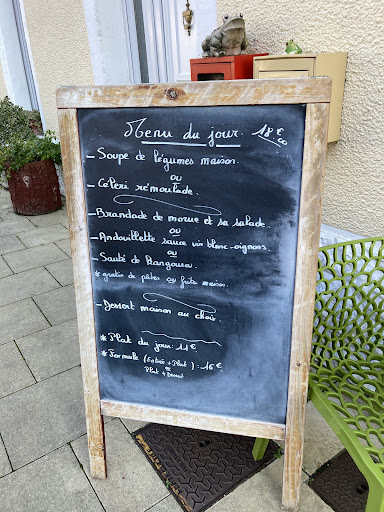 Menu du jour 18.€00
- Soupe de légumes maison.
ou
- Céleri rémoulade.
- Brandade de morue et sa salade.
ou
- Andouillette sauce vin blanc-oignons.
ou
- Sauté de Kangourou.
* gratin de pâtes ou frites maison.
- Dessert maison au choix.
* Plat du jour: 11€
* Formule (Entrée + Plat ou Plat + Dessert): 15€